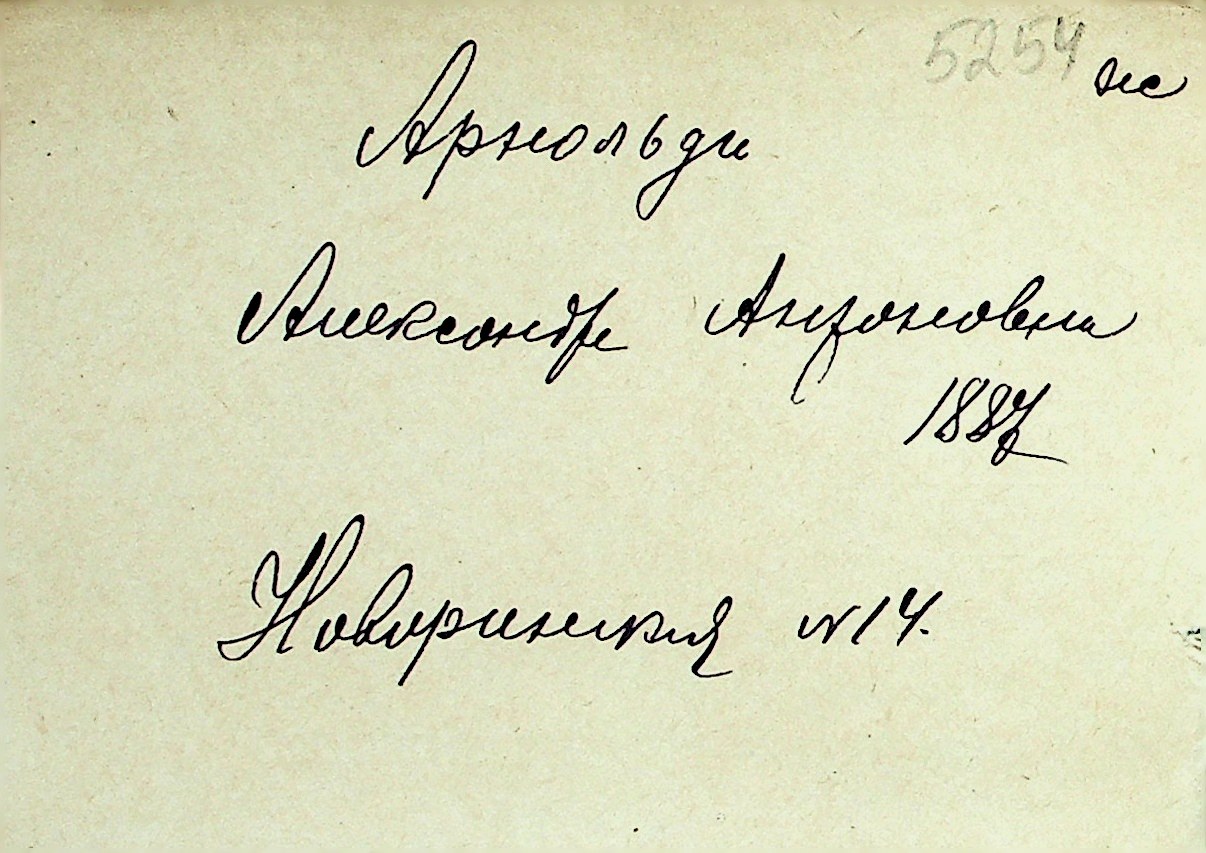 5254 не
Арнольди
Александра Антоновна
1887
Новоринская №14.